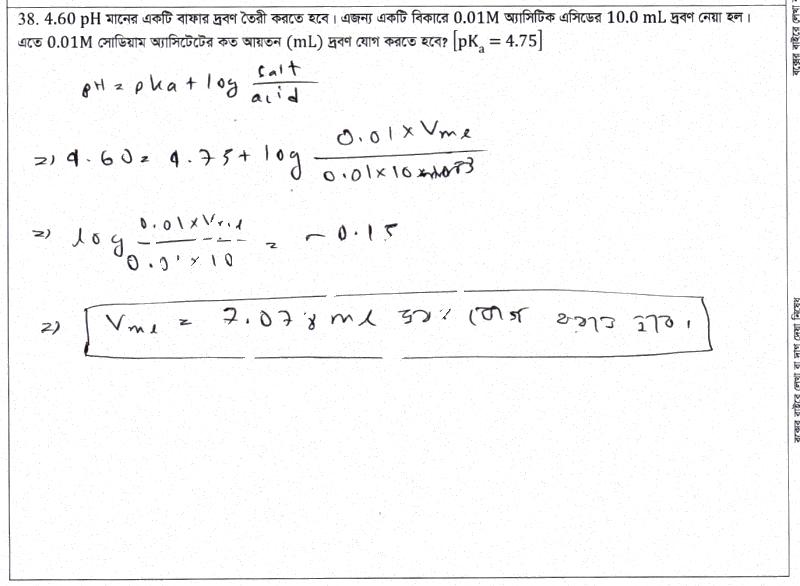 38. 4.60 pH মানের একটি বাফার দ্রবণ তৈরী করতে হবে। এজন্য একটি বিকারে 0.01M অ্যাসিটিক এসিডের 10.0 mL দ্রবণ নেয়া হল।
এতে 0.01M সোডিয়াম অ্যাসিটেটের কত আয়তন (mL) দ্রবণ যোগ করতে হবে? [pKₐ = 4.75]
pH = pka + log salt/acid
=> 4.60 = 4.75 + log (0.01 × V mL)/(0.01 × 10)
=> log (0.01 × V mL)/(0.01 × 10) = - 0.15
=> V mL = 7.07 mL দ্রবণ যোগ করতে হবে।